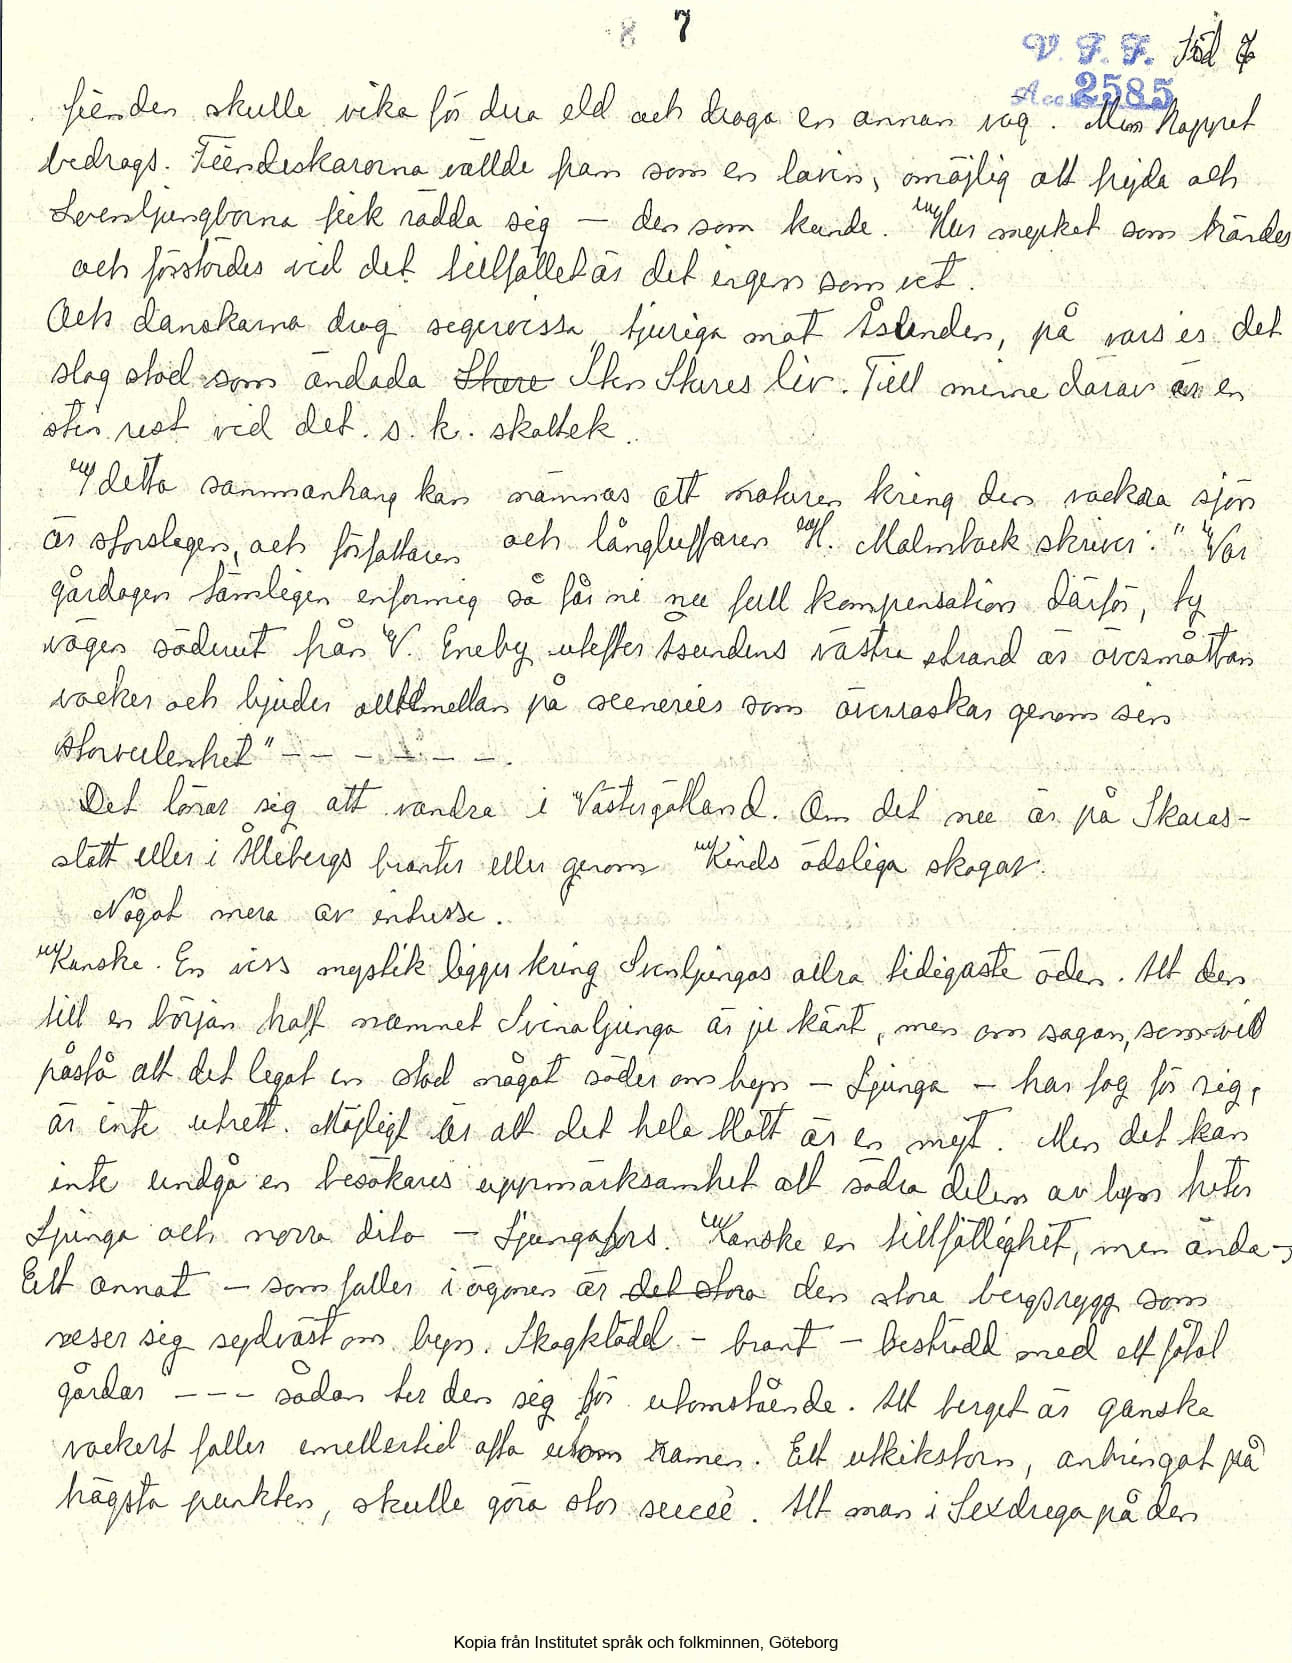 8 7
V. F. F. Död 7
Acc. 2585
fienden skulle vika för dera eld och draga en annan väg. Men hoppet
bedrogs. Fiendeskarorna vällde fram som en lavin, omöjlig att hejda och
Svenljungborna fick rädda sig – den som kunde. Hur mycket som brändes
och förstördes vid det tillfället är det ingen som vet.
Och danskarna drog segervissa tjuriga mot Åsunden, på vars is det
slag stod som ändada Skure Sten Stures liv. Till minne därav är en
sten rest vid det. s. k. skattek.
I detta sammanhang kan nämnas att naturen kring den vackra sjön
är storslagen, och författaren och långluffaren H. Malmback skriver: " Var
gårdagen tämligen enformig så får ni nu full kompensation därför, ty
vägen söderut från V. Eneby utefter Åsundens västra strand är övermåttan
vacker och bjuder alltemellan på scenerier som överraskar genom sin
storvulenhet" – – – – – –.
Det lönar sig att vandra i Västergötland. Om det nu är på Skaras-
slätt eller i Ållebergs branter eller genom Kinds ödsliga skogar.
Något mera av intresse.
Kanske. En viss mystik ligger kring Svenljungas allra tidigaste öden. Att den
till en början haft namnet Svinaljunga är ju känt, men om sagan, som vill
påstå att det legat en stad något söder om byn – Ljunga – har fog för sig,
är inte utrett. Möjligt är att det hela blott är en myt. Men det kan
inte undgå en besökares uppmärksamhet att södra delen av byn heter
Ljunga och norra dito – Ljungafors. Kanske en tillfällighet, men ända –
Ett annat – som faller i ögonen är det stora den stora bergsrygg som
reser sig sydväst om byn. Skogklädd – brant – beströdd med ett fåtal
gårdar – – – sådan ter den sig för utomstående. Att berget är ganska
vackert faller emellertid ofta utom ramen. Ett utkikstorn, anbringat på
högsta punkten, skulle göra stor succé. Att man i Sexdrega på den
Kopia från Institutet språk och folkminnen, Göteborg